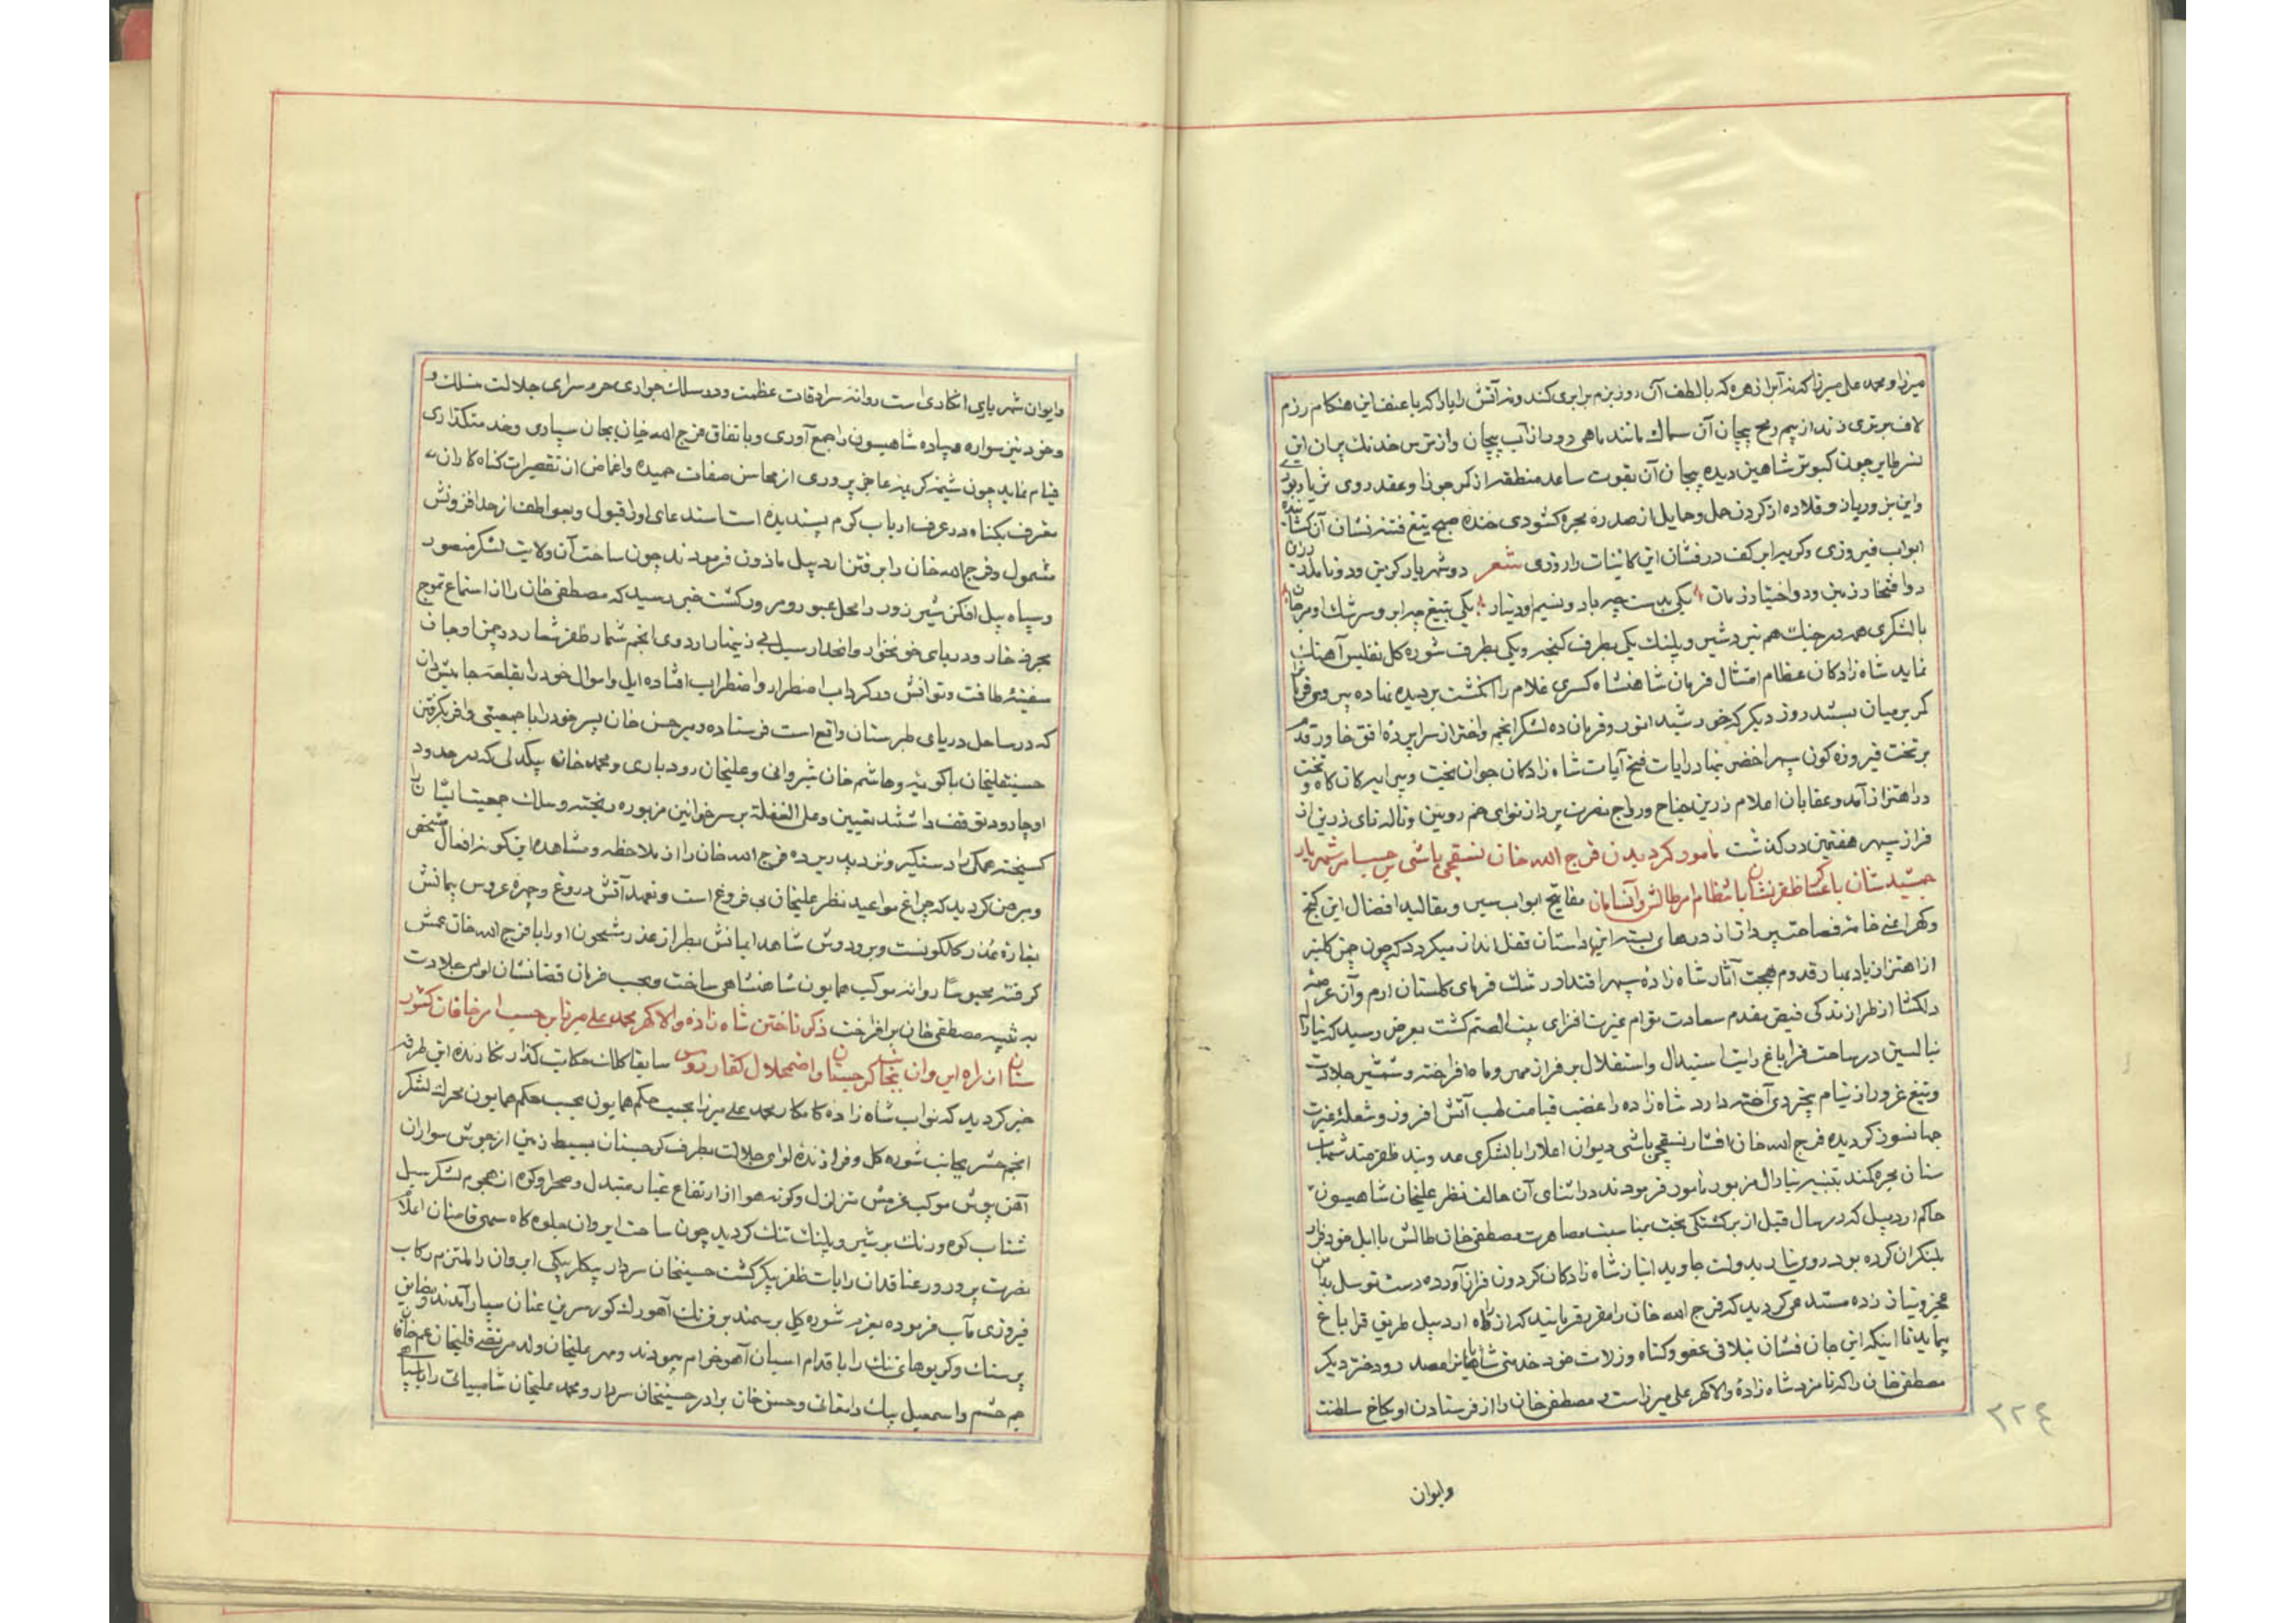 میرزا و محمد علی میرزا که نه آبرا زهره که با لطف آن روز بزم برابری کند و نه آتش را یارا که با عنف این هنکام رزم
لاف برتری زند از بیم رمح پیچان آن سماک مانند ماهی در میان آب پیچان و از ترس خدنک پران این
نسر طایر چون کبوتر شاهین دیده بیجان آن بقوت ساعد منطقه از کمر جوزا و عقد از روی ثریا
و این بزور بازو قلاده از کردن حمل و حمایل از صدر بحره کشودی خنده صبح تیغ فتنه نشان آن
ابواب فیروزی و کریه ابر کف درفشان این کاینات را روزی شعر دو شهریار کزین و دو نامدار
دو افتخار زمین و دو اختیار زمان یکی بدست چه باد و نسیم او دینار یکی بتیغ چه ابر و سرشک او مرجان
با لشکری همه در جنک هم نبرد شیر و پلنک یکی بطرف کنجه و یکی بطرف شوره کل تفلیس آهنک
نماید شاه زادکان عظام امتثال فرمان شاهنشاه کسری غلام را انکشت بر دیده نهاده
کمر بر میان بستند روز دیکر که خورشید انور و فرمان ده لشکر انجم و اختر از سراپرده افق خاور قدم
بر تخت فیروزه کون سپهر اخضر نهاد رایات فتح آیات شاه زادکان جوان بخت و پیرایه کان کاه و تخت
در اهتزاز آمد و عقابان اعلام زرین جناح و رواج نصرت پرداز نوای خم رویین و ناله نای زرین از
فراز سپهر هفتمین در کذشت مامور کردیدن فرج الله خان نسقچی باشی بر حسب امر شهریار
جمشید شان با عساکر ظفر نشان بانتظام امر طالش و آنسامان مفاتیح ابواب سیر و مقالید افضال این کنج
و کهر اعنی خامه فصاحت پرداز از درهای بسته این داستان قفل انداز میکردد که چون چمن کلنبر
از اهتزاز باد بهار قدوم بهجت آثار شاه زاده سپهر اقتدار رشک فرمای کلستان ارم و آن عرصه
دلکشا از طراز ندکی فیض مقدم سعادت توام غیرت افزای بیت الصنم کشت بعرض رسید که
نیالسین در ساحت قراباغ رایت استبدال و استقلال بر فراز مهر و ماه افراخته و شمشیر جلادت
و تیغ غرور از نیام بیخردی آخته دارد شاه زاده را غضب قیامت لهب آتش افروز و شعله غیرت
جهانسوز کردیده فرج الله خان افشار نسقچی باشی دیوان اعلا را با لشکری رعد و بند ظفر مند شهاب
سنان بحره کمند بتنبیه نیارال مزبور مامور فرمودند در اثنای آن حالت نظر علیخان شاهیسون
حاکم اردبیل که در سال قبل از برکشتکی بخت بمناسبت مصاهرت مصطفی خان طالش با ایل خود فرار
بلنکران کرده بود روی نیاز بدولت جاوید انباز شاه زادکان کردون فراز آورده دست توسل بدامن
عجز و نیاز زده مستدعی کردید که فرج الله خان را مقرر فرمایند که از راه اردبیل طریق قراباغ
پیماید تا اینکه این جان فشان بتلافی عفو و کناه و زلات خود خدمتی شایان مصدر رود دختر دیکر
مصطفی خان را که نامزد شاه زاده والا کهر علی میرزا است مصطفی خان را از فرستادن او بکاخ سلطنت
وایوان
۳۲٤
وایوان شهریاری انکاری است روانه سرادقات عظمت و در سلک جواری حرم سرای جلالت منسلک و
و خود نیز سواره و پیاده شاهیسون را جمع آوری و باتفاق فرج الله خان بجان سپاری و خدمتکذاری
قیام نماید چون شیمه کریمه عاجز پروری از محاسن صفات حمیده و اغماض از تقصیرات کناه کاران
معترف بکناه در عرف ارباب کرم پسندیده است استدعای او را قبول و بعواطف از حد افزونش
مشمول و فرج الله خان را برفتن اردبیل ماذون فرمودند چون ساحت آن ولایت لشکر منصور
و سپاه پیل افکن شیر زور را محل عبور و مرور کشت خبر رسید که مصطفی خان را از استماع تموج
بحر ذخار و دریای خونخوار و انحدار سیل بی زینهار اردوی انجم شمار ظفر شعار در چمن اوجان
سفینه طاقت و توانش در کرداب اضطرار و اضطراب افتاده ایل و اموال خود را بقلعه جامیشوان
که در ساحل دریای طبرستان واقع است فرستاده و میر حسن خان پسر خود را با جمعیتی وافر بکرفتن
حسینقلیخان باکویه و هاشم خان شیروانی و علیخان رودباری و محمد خان بیکدلی که در حدود
اوجارود توقف داشتند تعیین و علی الغفله بر سر خوانین مزبوره ریخته و سلک جمعیت ایشان
کسیخته همکی را دستکیر و نزد پدر برده فرج الله خان را از ملاحظه و مشاهده این کونه افعال مشخص
و مبرهن کردید که چراغ مواعید نظر علیخان بی فروغ است و تعهد آتش دروغ و چهره عروس پیمانش
بغازه عذر کالکونست و بر و دوش شاهد ایمانش بطراز غدر مشحون او را با فرج الله خان عمش
کرفته محبوسا روانه موکب همایون شاهنشاهی ساخت و بموجب فرمان قضا نشان لوای جلادت
به تنبیه مصطفی خان برافراخت ذکر تاختن شاه زاده والا کهر محمد علی میرزا بر حسب امر خاقان کشور
ستان از راه ایروان بخاک کرجستان و اضمحلال کفار روس سابقا کلک حکایت کذار نکارنده این طرفه
خبر کردید که نواب شاه زاده کامکار محمد علی میرزا بحسب حکم همایون بموجب حکم همایون محرک لشکر
انجم حشر بجانب شوره کل و فرازنده لوای جلالت بطرف کرجستان بسیط زمین از جوش سواران
آهن پوش موکب غرمش متزلزل و کونه هوا از ارتفاع غبار متبدل و صحرا و کوه از هجوم لشکر سیل
شتاب کوه درنک بر شیر و پلنک تنک کردید چون ساحت ایروان جلوه کاه سمی قامتان اعلام
نصرت پرور و رعناقدان رایات ظفر پیکر کشت حسینخان سردار بیکلربیکی ایروان را ملتزم رکاب
فیروزی مآب فرموده بعزم شوره کل بر سمند برق تک آهورک کور سرین عنان سپار آمدند و مضایق
پر سنک و کریوهای تنک را باقدام اسبان آهو خرام پیمودند و مهر علیخان ولد مرتضی قلیخان عم خاقان
جم حشم و اسمعیل بیک دامغانی و حسن خان برادر حسینخان سردار و محمد علیخان شامبیاتی را با سپاه